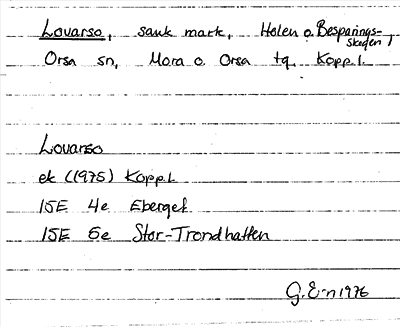 Lovarso, sank mark, Holen o. Besparings-
skogen,
Orsa sn, Mora o. Orsa tg. Kopp.l.
Lovarso
ek (1975) Kopp.l.
15E 4e Eberget
15E 5e Stor-Trondhatten
G. E-n 1976